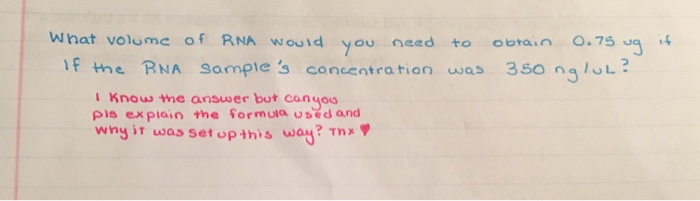 What volume of RNA would you need to obtain 0.75 ug if
If the RNA sample's concentration was 350 ng/uL?
I Know the answer but can you
pls explain the formula used and
why it was set up this way? Thx ♥